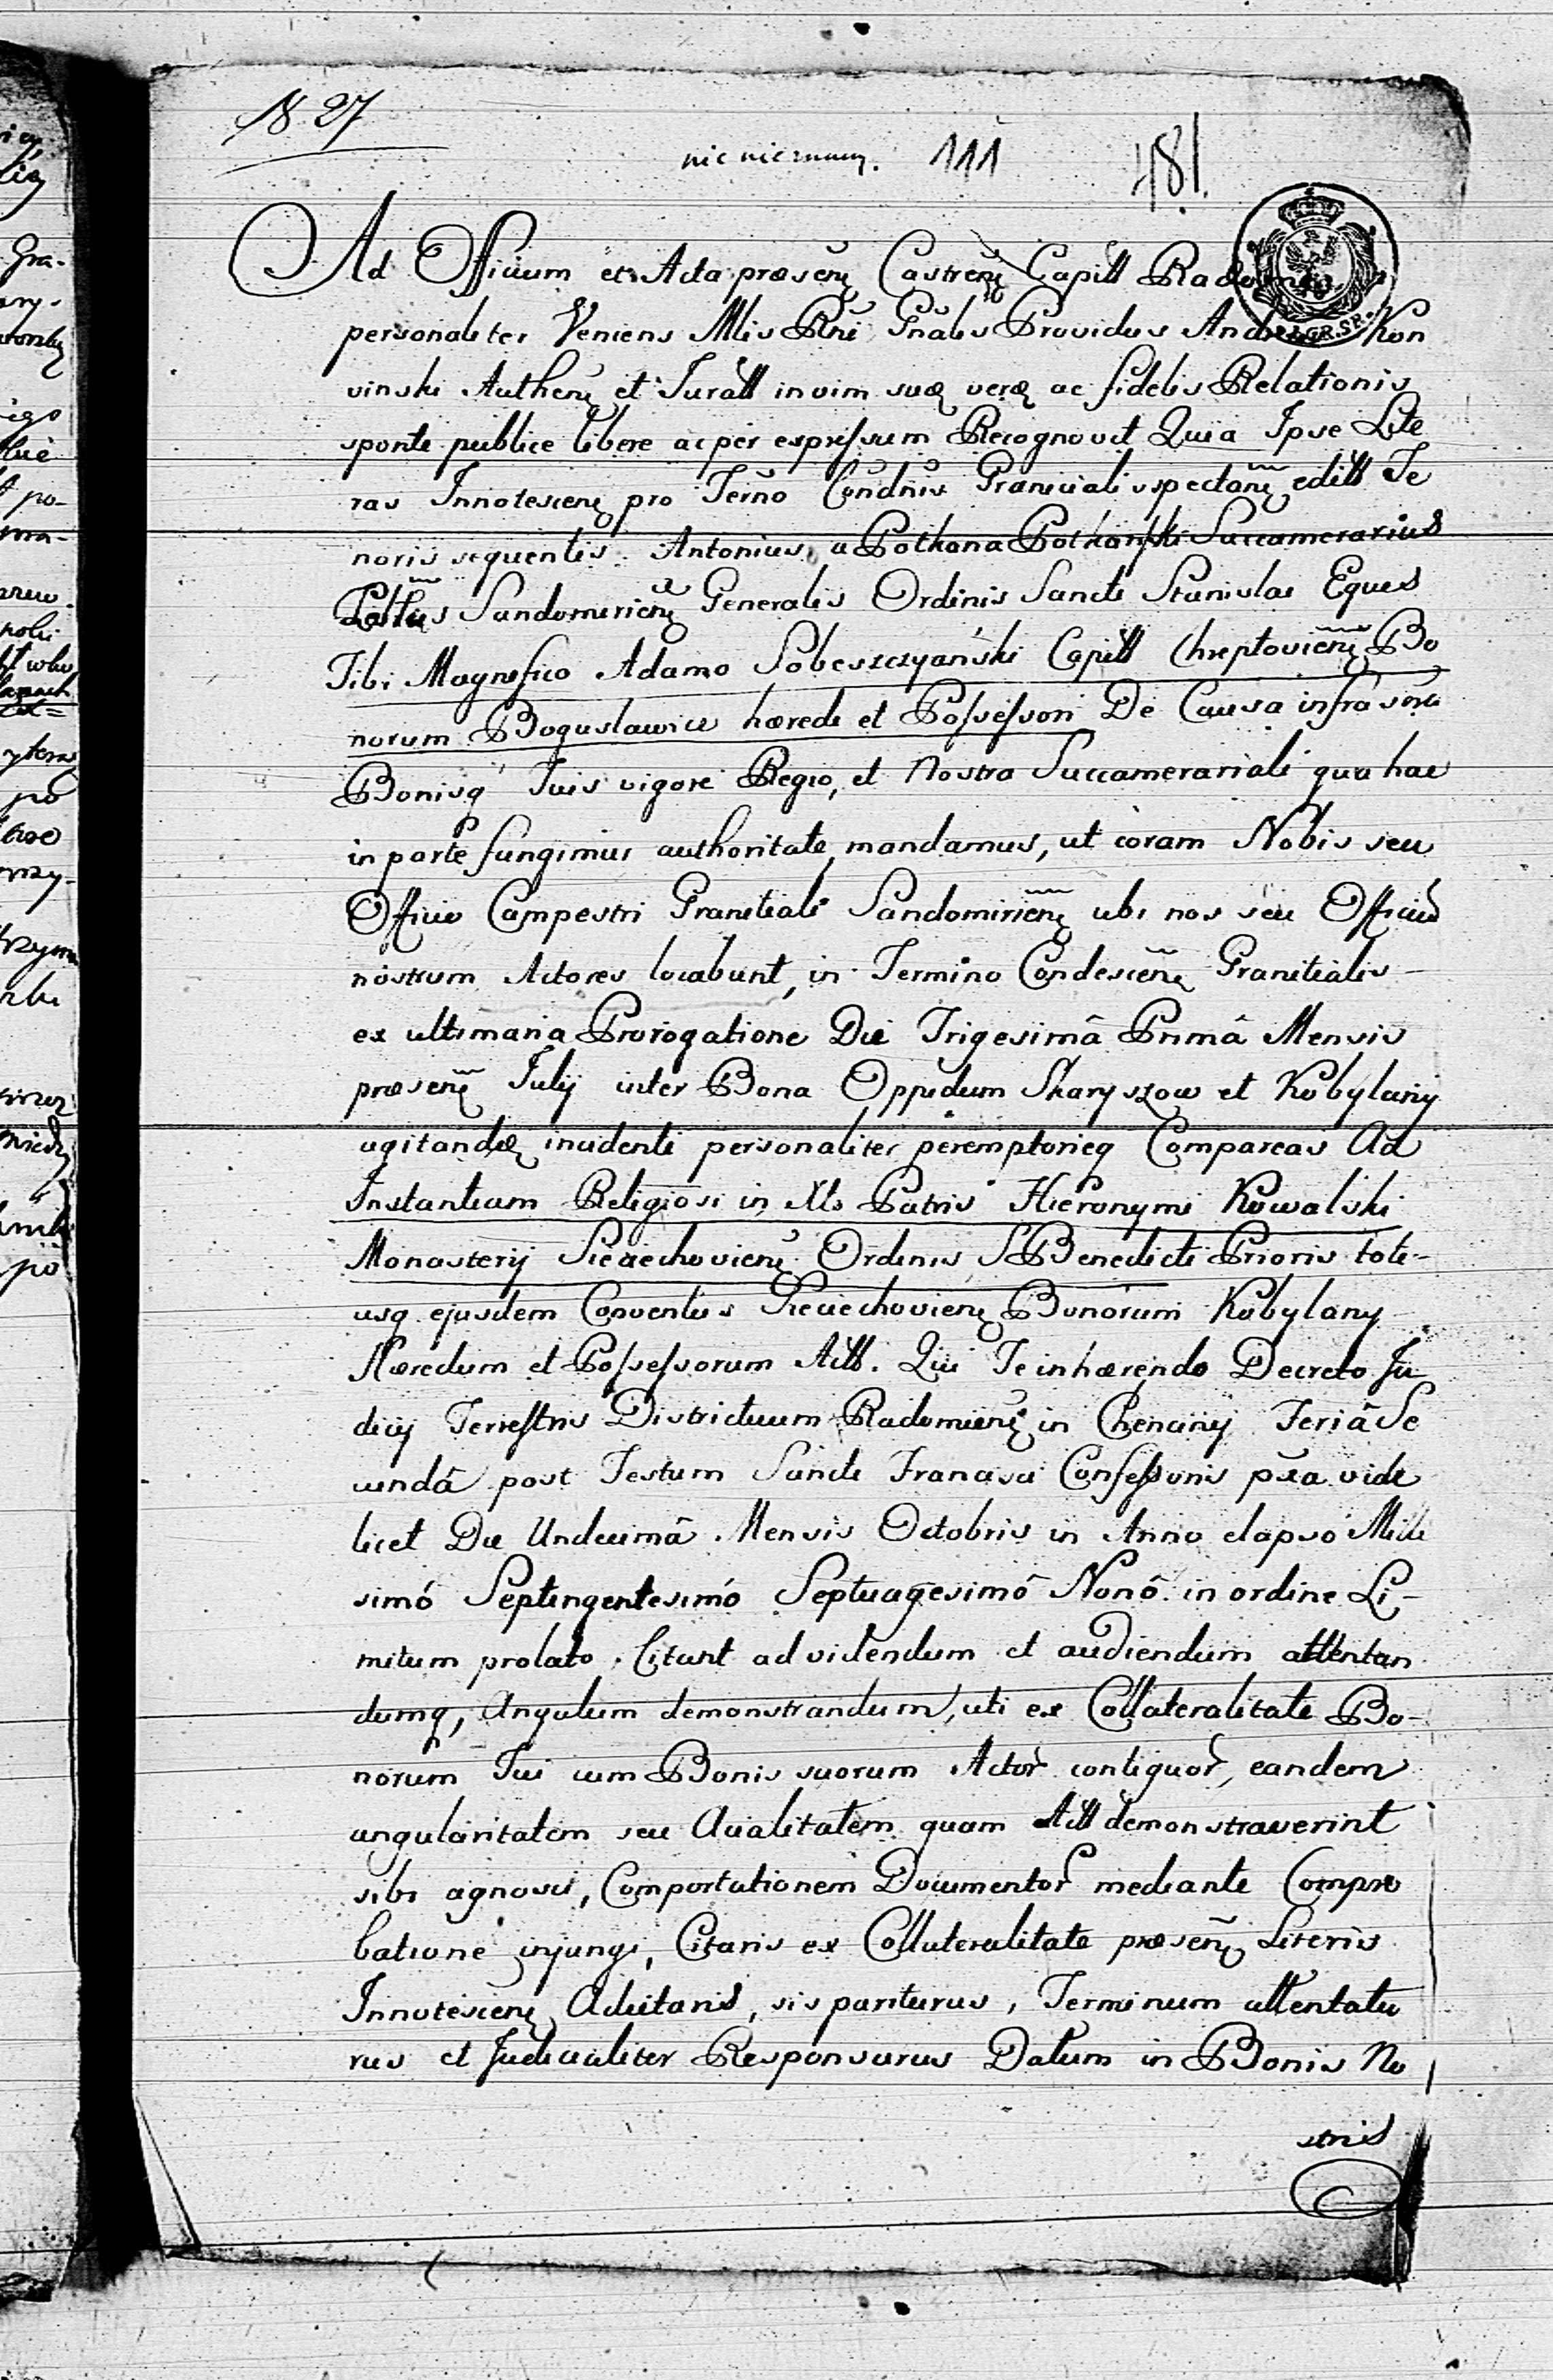 1827
111 181.
Ad Officium et Acta præsen̄ Castren̄ Capitl Rado
personaliter Veniens Mlis Rñi Gñalis Providus Andreas Kon
vinski Authen̄ et Juratt in vim suæ veræ ac fidelis Relationis
sponte publice libere ac per expressum Recognovit Quia Ipse Lite
ras Innotescen̄ pro Term̄o Condn̄is Graniciali spectan̄ editt Te
noris sequentis. Antonius a Potkana Potkanski Succamerarius
Sandomirien̄ Generalis Ordinis Sancti Stanislai Eques
Tibi Magnifico Adamo Sobeszczyański Capitl Chreptovien̄ Bo
norum Boguslawice hæredi et Possessori De Causa infra
Bonisq Tuis vigore Regio, et Nostra Succamerariali qua hac
in parte fungimur authoritate mandamus, ut coram Nobis seu
Officio Campestri Granitiali Sandomirien̄ ubi nos seu Officiu
nostrum Actores locabunt, in Termino Condescen̄ Granitialis -
ex ultimaria Prorogatione Die Trigesimâ Primâ Mensis
præsen̄ Julij inter Bona Oppidum Skaryszow et Kobylany
agitandæ incidenti personaliter peremptorieq Compareas Ad
Instantiam Religiosi in Xto Patris Hieronymi Kowalski
Monasterij Sieciechovien̄ Ordinis S Benedicti Prioris toti-
usq ejusdem Conventus Sieciechovien̄ Bonorum Kobylany
Hæredum et Possessorum Att. Qui Te inhærendo Decreto Ju
dicij Terrestris Districtuum Radomien̄ in Chenciny Feriâ Se
cundâ post Festum Sancti Francisci Confessoris pxa vide
licet Die Undecimâ Mensis Octobris in Anno elapso Mille
simô Septingentesimô Septuagesimô Nonô in ordine Li-
mitum prolato. Citant ad videndum et audiendum attentan
dumq, Angulum demonstrandum, uti ex Collateralitate Bo-
norum Tui cum Bonis suorum Actor contiguor, eandem
angularitatem seu Acialitatem quam Att demonstraverint
sibi agnosci, Comportationem Documentor mediante Compro
batione injungi, Citaris ex Collateralitate præsen̄ Literis
Innotescen̄ Adcitaris, sis pariturus, Terminum attentatu
rus et Judicialiter Responsurus Datum in Bonis No
stris